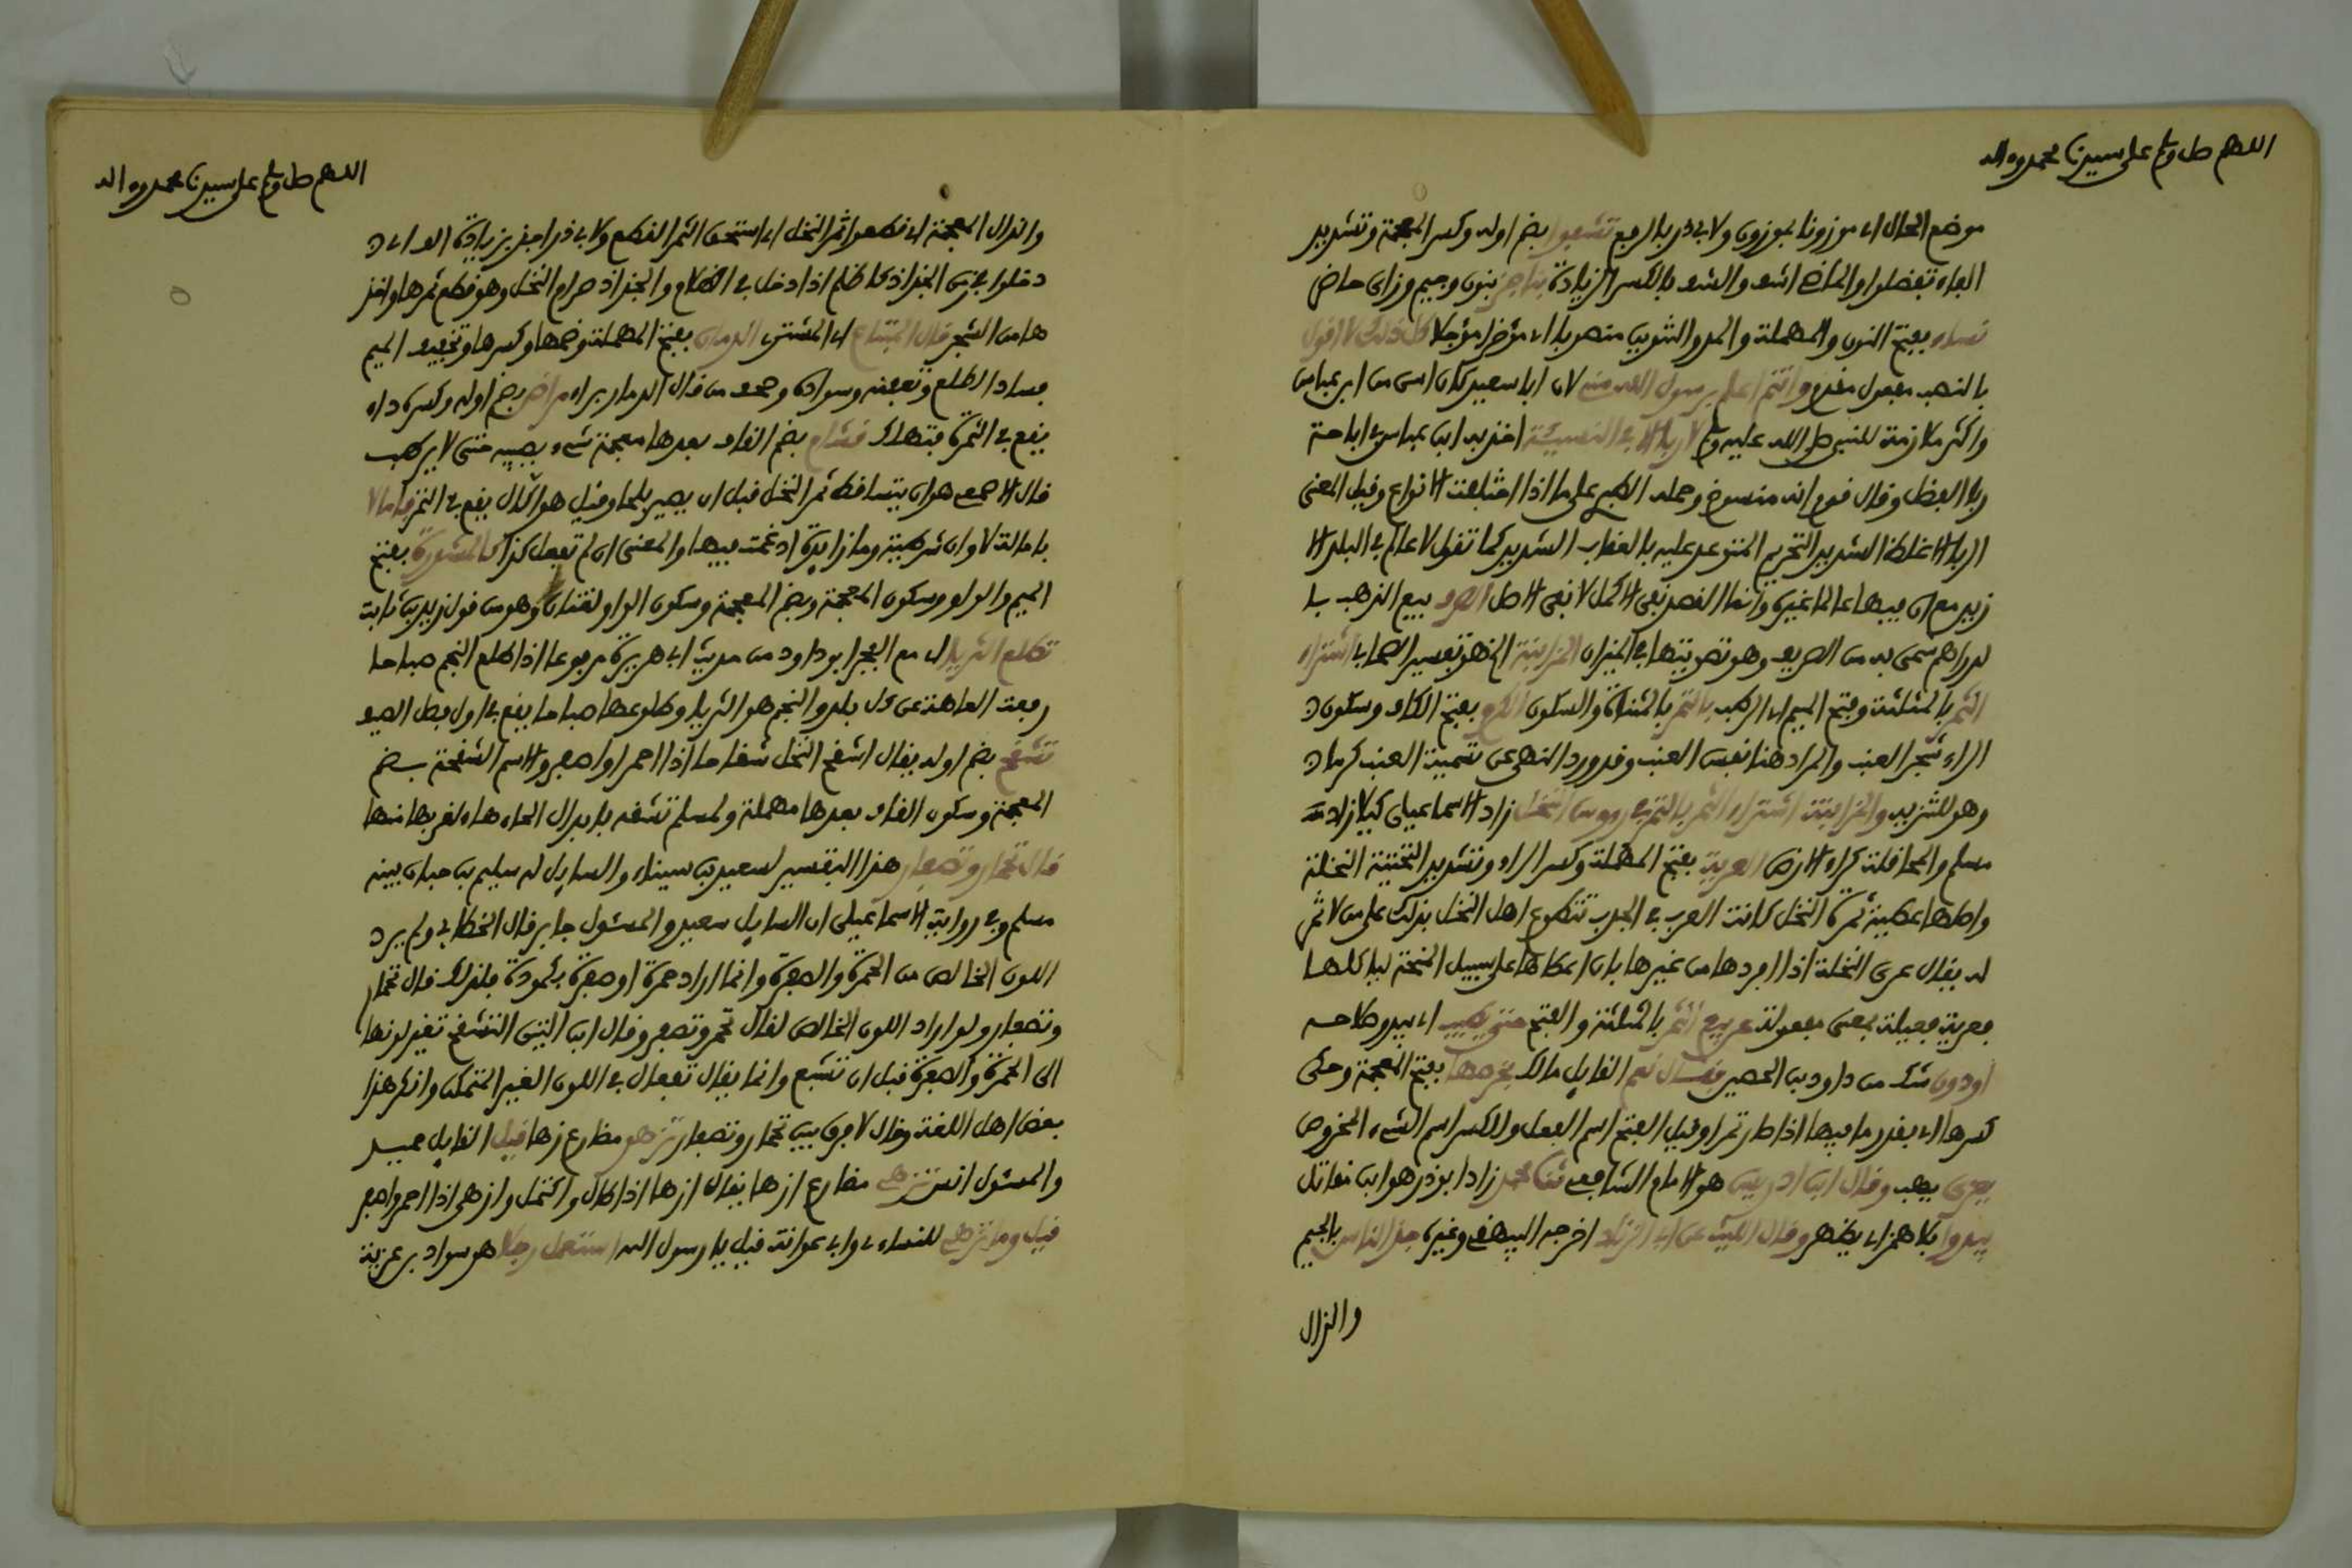 اللهم صل وسلم على سيدنا محمد وءاله
موضع الحال اي موزونا بموزون ولابي ذر بالرفع تشفوا بضم اوله وكسر المعجمة وتشديد
الفاء تفضلوا والماضي اشف والشف بالكسر الزيادة بناجز بنون وجيم وزاى حاضر
نساء بفتح النون والمهملة والمد والتنوين منصوبا اي مؤخرا مؤجلا كل ذلك لا اقول
بالنصب مفعول مقدم وانتم اعلم برسول الله مني لان ابا سعيد كان اسن من ابن عباس
واكثر ملازمة للنبي صلى الله عليه وسلم لا ربا الا في النسيئة اخذ به ابن عباس في اباحة
ربا الفضل وقال قوم انه منسوخ وحمله الطبري على ما اذا اختلفت الانواع وقيل المعنى
الربا الاغلظ الشديد التحريم المتوعد عليه بالعقاب الشديد كما تقول لا عالم في البلد الا
زيد مع ان فيها عالما غيره وانما القصد نفي الاكمل لا نفي الاصل الصرف بيع الذهب با
لدراهم سمى به من الصريف وهو تصويتها في الميزان المزابنة الخ هو تفسير الصحابي اشتراء
الثمر بالمثلثة وفتح الميم اي الرطب بالتمر بالمثناة والسكون الكرم بفتح الكاف وسكون
الراء شجر العنب والمراد هنا نفس العنب وقد ورد النهي عن تسمية العنب كرما
وهو للتنزيه والمزابنة اشتراء الثمر بالتمر في رووس النخل زاد الاسماعيلي كيلا زاد
مسلم والمحاقلة كراء الارض العرية بفتح المهملة وكسر الراء وتشديد التحتية النخلة
واصلها عطية ثمرة النخل كانت العرب في الجدب تتطوع اهل النخل بذلك على من لا ثمر
له يقال عرى النخلة اذا افردها من غيرها بان اعطاها على سبيل المنحة لياكلها
فعرية فعيلة بمعنى مفعولة عن بيع الثمر بالمثلثة والفتح حتى يطيب اي يبدو صلاحه
او دون شك من داود بن الحصين فقال نعم القايل مالك بخرصها بفتح المعجمة وحكى
كسرها اي بقدر ما فيها اذا صار تمرا وقيل الفتح اسم الفعل والكسر اسم الشيء المخروص
يعرى يهب وقال ابن ادريس هو الامام الشافعي ثنا محمد زاد ابو ذر هو ابن مقاتل
يبدوا بلا همز اي يظهر وقال الليث عن ابي الزناد اخرجه البيهقي وغيره جذ الناس بالجيم
والذال
اللهم صل وسلم على سيدنا محمد وءاله
والذال المعجمة اي قطعوا ثمر النخل اي استحق الثمر القطع ولابي ذر اجذ بزيادة الف اي
دخلوا في زمن الجذاذ كاظلم اذا دخل في الظلام والجذاذ صرام النخل وهو قطع ثمرها واخذ
ها من الشجر قال المبتاع اي المشترى الدمان بفتح المهملة وضمها وكسرها وتخفيف الميم
فساد الطلع وتعفنه وسواده وصحف من قال الدمار براء مراض بضم اوله وكسره داء
يقع في الثمرة فتهلك قشام بضم القاف بعدها معجمة شيء يصيبه حتى لا يرطب
قال الاصمعي هو ان يتساقط ثمر النخل قبل ان يصير بلحا وقيل هو اكال يقع في الثمر فاما لا
بامالة لا وان شرطية وما زايدة ادغمت فيها والمعنى ان لم تفعل كذا كالمشورة بفتح
الميم والواو وسكون المعجمة وبضم المعجمة وسكون الواو لغتان وهو من قول زيد بن ثابت
تطلع الثريا اي مع الفجر ابو داود من حديث ابي هريرة مرفوعا اذا طلع النجم صباحا
رفعت العاهة عن كل بلد والنجم هو الثريا وطلوعها صباحا يقع في اول فصل الصيف
تشقح بضم اوله يقال اشقح النخل شقاحا اذا احمر او اصفر والاسم الشقحة بضم
المعجمة وسكون القاف بعدها مهملة ولمسلم تشقه بابدال الحاء هاء لقربها منها
قال تحمار وتصفار هذا التفسير لسعيد بن ميناء والسايل له سليم بن حيان بينه
مسلم وفي رواية الاسماعيلي ان السايل سعيد والمسئول جابر قال الخطابي ولم يرد
اللون الخالص من الحمرة والصفرة وانما اراد حمرة او صفرة بكمودة فلذلك قال تحمار
وتصفار ولو اراد اللون الخالص لقال تحمر وتصفر وقال ابن التين التشقح تغير لونها
الى الحمرة والصفرة قبل ان تشبع وانما يقال تفعال في اللون الغير المتمكن وانكر هذا
بعض اهل اللغة وقال لا فرق بين تحمار وتصفار تزهو مضارع زها قيل القايل حميد
والمسئول انس تزهى مضارع ازها يقال ازها اذا طال واكتمل وازهى اذا احمر واصفر
قيل وما تزهى للنساءي وابي عوانة قيل يا رسول الله استعمل رجلا هو سواد بن غزية